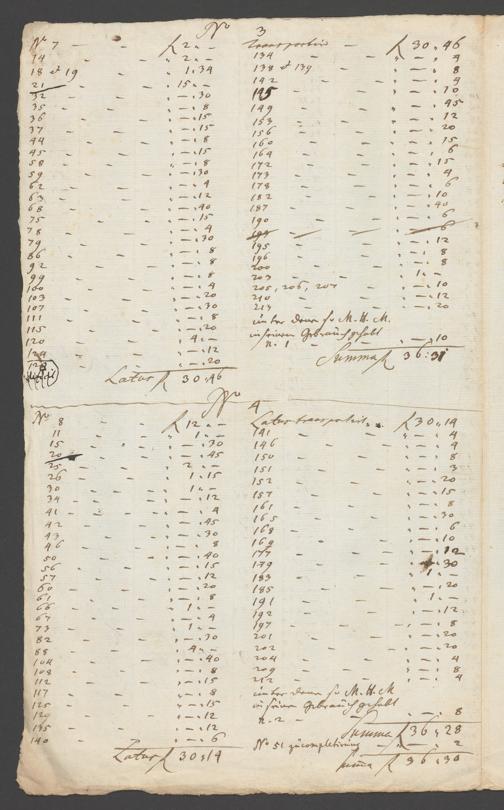 No 3
No 7 — f 2 „ —
14 — „ 2 „ —
18 et 19 — „ 1 „ 34
21 — „ 15 „ —
32 — „ — „ 30
35 — „ — „ 8
36 — „ — „ 15
37 — „ — „ 15
44 — „ — „ 8
45 — „ — „ 15
58 — „ — „ 8
59 — „ — „ 30
62 — „ — „ 4
63 — „ — „ 12
68 — „ — „ 40
75 — „ — „ 15
78 — „ — „ 4
79 — „ — „ 30
86 — „ — „ 8
92 — „ — „ 8
99 — „ — „ 8
100 — „ — „ 4
103 — „ — „ 20
107 — „ — „ 30
111 — „ — „ 8
115 — „ — „ 20
120 — „ 4 „ —
124 — „ — „ 12
128 — „ — „ 20
Latus f 30 „ 46
Transportirt — f 30 „ 46
134 — „ — „ 4
138 et 139 — „ — „ 8
142 — „ — „ 4
145 — „ — „ 10
149 — „ — „ 45
153 — „ — „ 12
156 — „ — „ 20
160 — „ — „ 15
164 — „ — „ 6
172 — „ — „ 15
173 — „ — „ 4
178 — „ — „ 6
182 — „ — „ 10
187 — „ — „ 40
190 — „ — „ 6
— „ — „ 6
195 — „ — „ 12
196 — „ — „ 8
200 — „ — „ 8
203 — „ 1 „ —
205, 206, 207 — „ — „ 10
210 — „ — „ 12
217 — „ — „ 20
unter denen so M. H. M.
in seinen Gebrauch gehabt
n. 1 — „ — „ 10
Summa f 36 : 31
No 4
No 8 — f 12 „ —
11 — „ 1 „ —
15 — „ — „ 30
20 — „ — „ 45
25 — „ 2 „ —
26 — „ 1 „ 15
30 — „ 1 „ —
34 — „ — „ 12
41 — „ — „ 4
42 — „ — „ 45
43 — „ — „ 30
46 — „ — „ 8
50 — „ — „ 40
56 — „ — „ 15
57 — „ — „ 12
60 — „ — „ 20
61 — „ — „ 8
66 — „ 1 „ —
67 — „ — „ 4
73 — „ 1 „ —
82 — „ — „ 30
88 — „ 4 „ —
104 — „ — „ 40
108 — „ — „ 8
112 — „ — „ 15
117 — „ — „ 8
125 — „ — „ 15
129 — „ — „ 12
135 — „ — „ 12
140 — „ — „ 6
Latus f 30 „ 14
Latus transportirt „ f 30 „ 14
141 — „ — „ 4
146 — „ — „ 4
150 — „ — „ 8
151 — „ — „ 3
152 — „ — „ 20
157 — „ — „ 15
161 — „ — „ 8
165 — „ — „ 30
168 — „ — „ 6
169 — „ — „ 10
177 — „ — „ 12
179 — „ — „ 30
183 — „ 1 „ —
185 — „ — „ 20
191 — „ 1 „ —
192 — „ — „ 12
197 — „ — „ 8
201 — „ — „ 20
202 — „ — „ 20
204 — „ — „ 4
209 — „ — „ 8
212 — „ — „ 4
unter denen so M. H. M
in seinen Gebrauch gehabt
n. 2 — „ — „ 8
Summa f 36 „ 28
No 51 zu completirung „ — „ 2
Summa f 36 „ 30